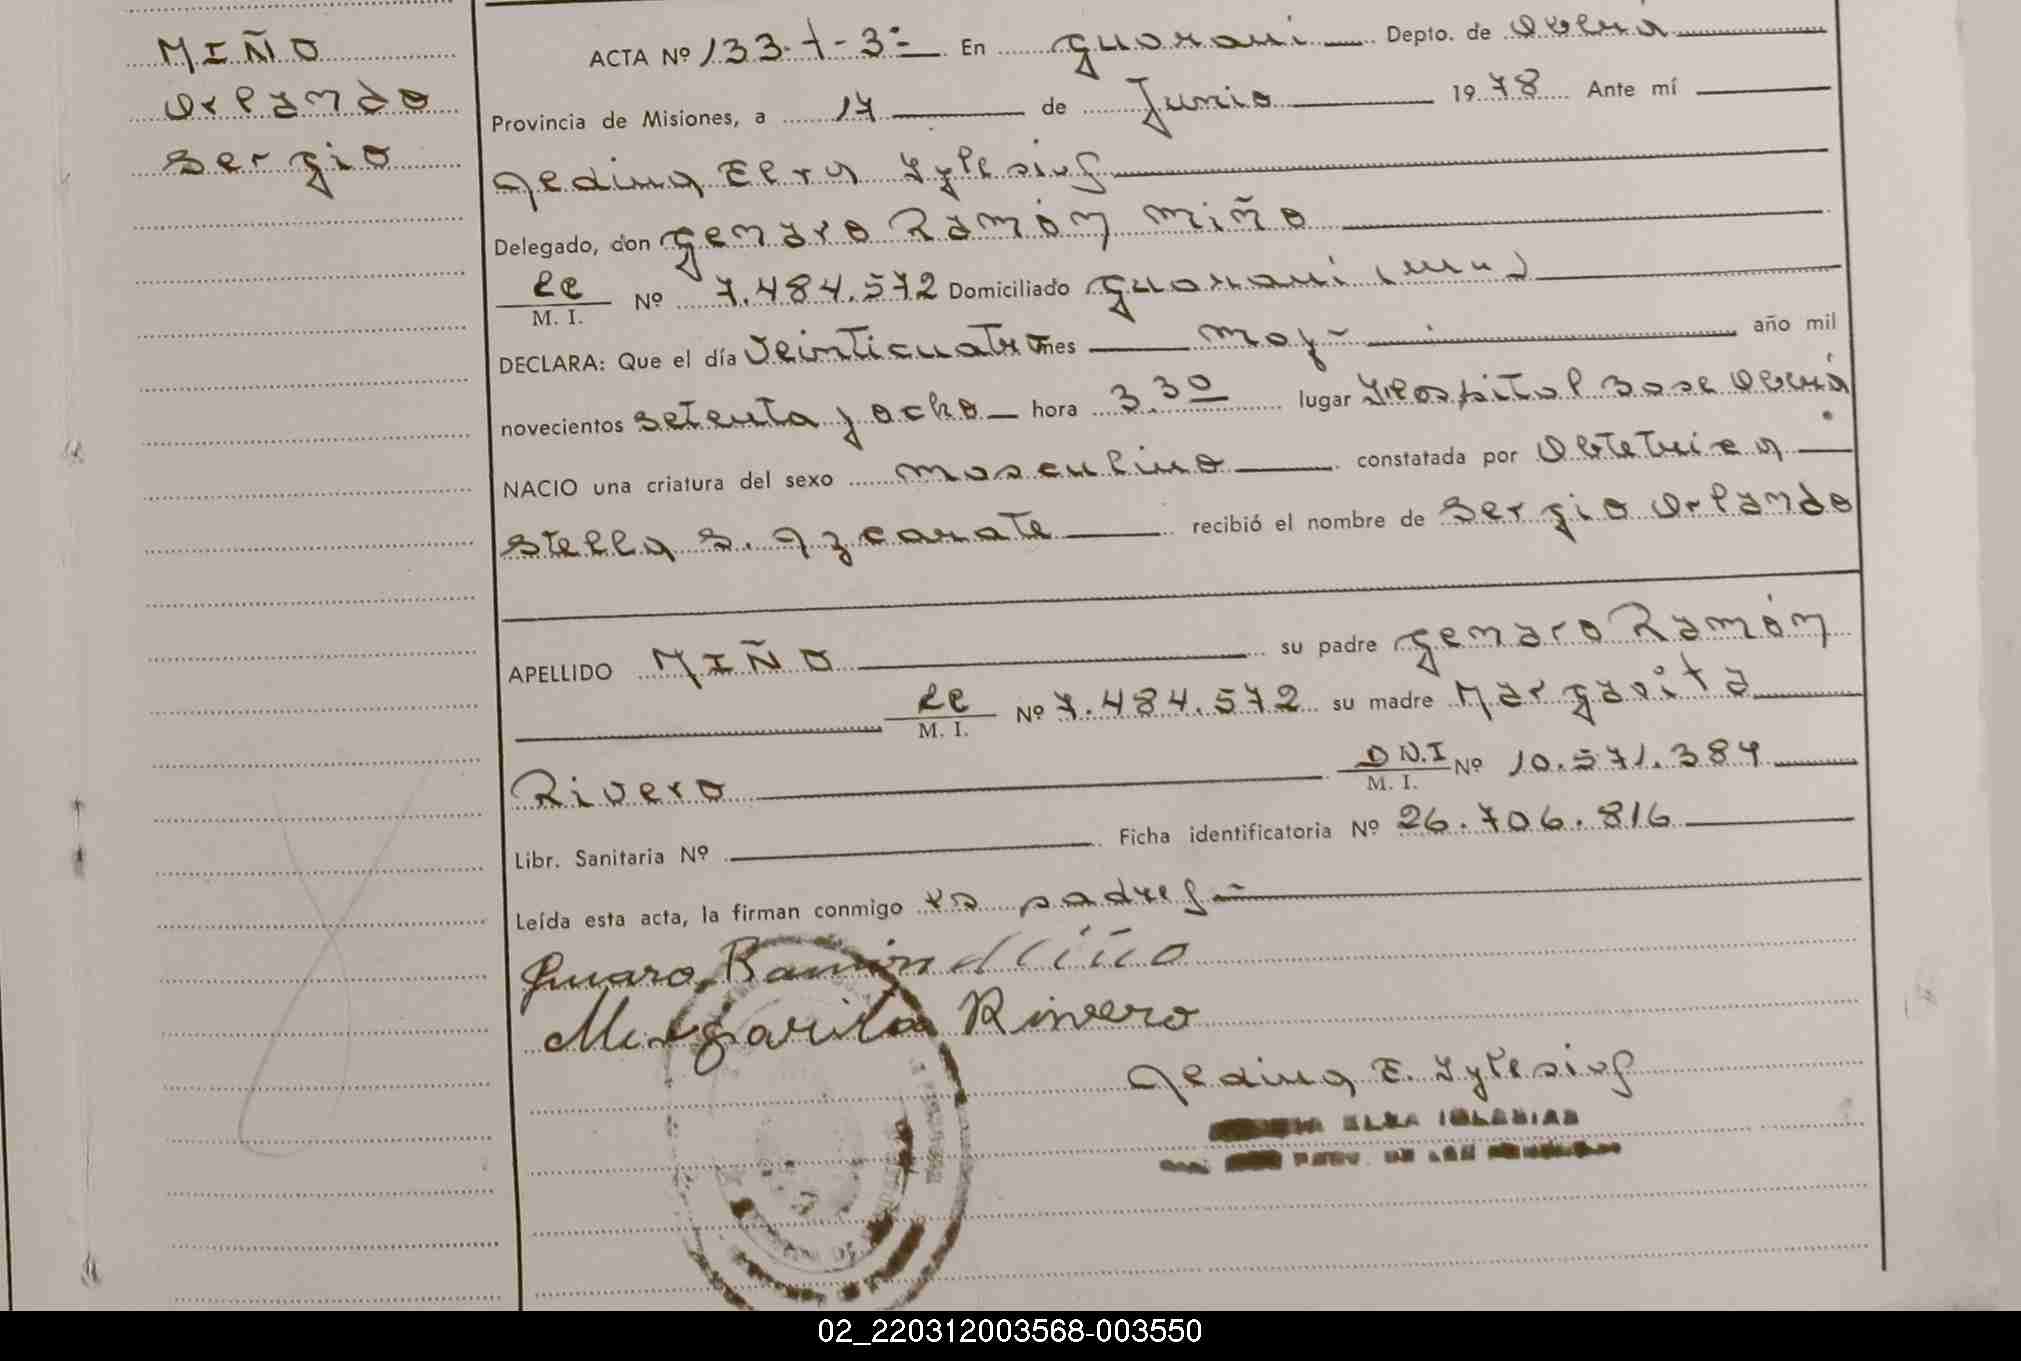 MIÑO
Orlando
Sergio
ACTA Nº 133-T-3º En Guaraní Depto. de Oberá
Provincia de Misiones, a 17 de Junio 1978 Ante mí
Aedina Elsa Iglesias
Delegado, don Genaro Ramón Miño
LE M. I. Nº 7.484.572 Domiciliado Guaraní (Mnes)
DECLARA: Que el día Veinticuatro mes Mayo año mil
novecientos setenta y ocho hora 3.30 lugar Hospital Base Oberá
NACIO una criatura del sexo masculino constatada por Obtetrica
Stella S. Azcarate recibió el nombre de Sergio Orlando
APELLIDO MIÑO su padre Genaro Ramón
LE M. I. Nº 7.484.572 su madre Margarita
Rivero D.N.I M. I. Nº 10.571.384
Libr. Sanitaria Nº Ficha identificatoria Nº 26.706.816
Leída esta acta, la firman conmigo padres
Genaro Ramón Miño
Margarita Rivero
Aedina E. Iglesias
ELSA IGLESIAS
DE LAS
02_220312003568-003550